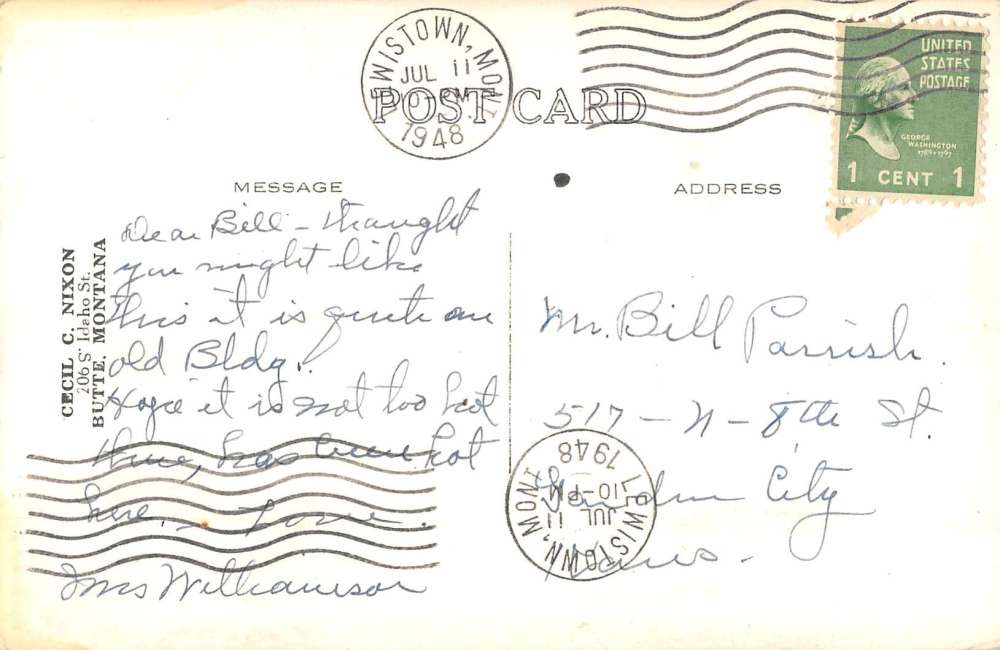 LEWISTOWN, MONT.
JUL 11
10-PM
1948
POST CARD
UNITED
STATES
POSTAGE
GEORGE
WASHINGTON
1789-1797
1 CENT 1
MESSAGE
ADDRESS
CECIL C. NIXON
206 S. Idaho St.
BUTTE, MONTANA
Dear Bill - thought
you might like
this it is quite an
old Bldg.
Hope it is not too hot
there, has been hot
here. - Love.
Mrs Williamson
Mr. Bill Parrish.
517 - N - 8th St.
City
LEWISTOWN, MONT.
JUL 11
10-PM
1948